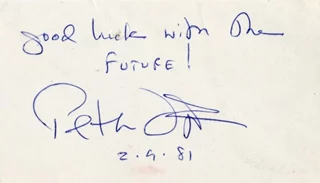 good luck with the
FUTURE!
Peter
2.9.81